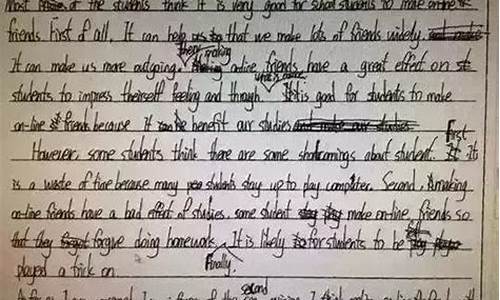 Most of the students think it is very good for school students to make on-line
friends. First of all, It can help us that we make lots of friends widely.
It can make us more outgoing. then, making on-line friends have a great effect on
students to impress theirself feeling and through. What's more, It is good for students to make
on-line friends because it can be benefit our studies
However, some students think there are some shortcomings about student. first It
is a waste of time because many students stay up to play computer. Second, making
on-line friends have a bad effect of studies. some student make on-line friends so
that they forgive doing homework. Finally, It is likely for students to be
played a trick on.
second